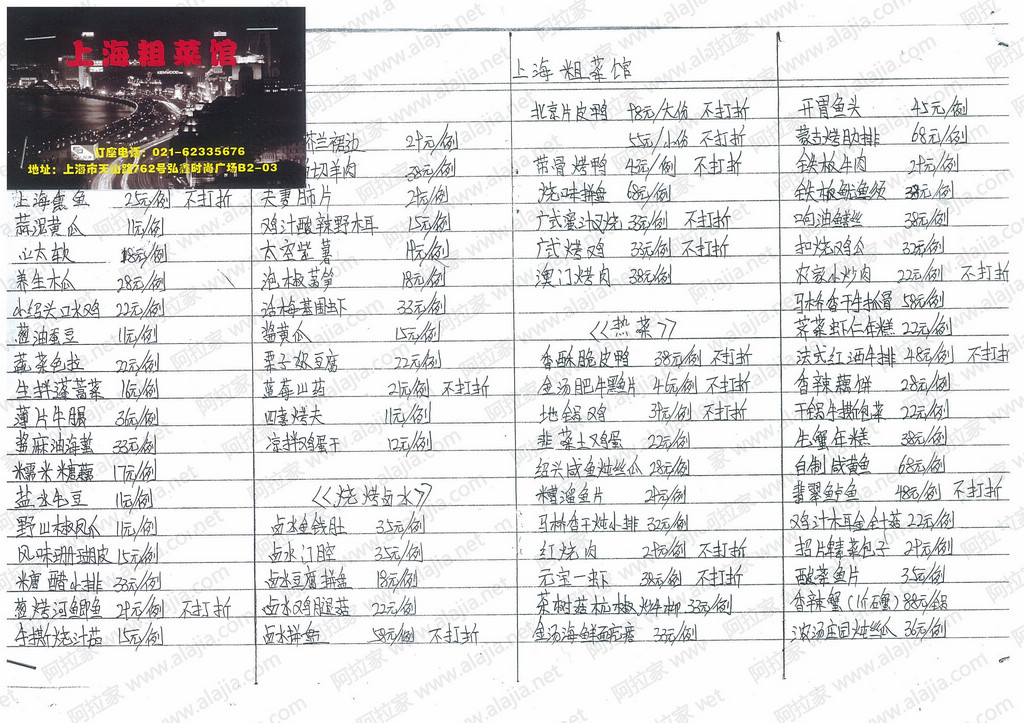 上海粗菜馆
订座电话：021-62335676
地址：上海市天山路762号弘鑫时尚广场B2-03
上海熏鱼 25元/例 不打折
蒜泥黄瓜 11元/例
心太软 18元/例
养生木瓜 28元/例
小绍头口水鸡 22元/例
葱油蚕豆 11元/例
蔬菜色拉 22元/例
生拌蓬蒿菜 16元/例
薄片牛腱 36元/例
酱麻油海蜇 33元/例
糯米糖藕 17元/例
盐水毛豆 11元/例
野山椒凤爪 11元/例
风味珊瑚皮 15元/例
糖醋小排 33元/例
葱烤河鲫鱼 24元/例 不打折
手撕烧汁茄 15元/例
芥兰裙边 24元/例
切羊肉 38元/例
夫妻肺片 24元/例
鸡汁酸辣野木耳 15元/例
太空紫薯 19元/例
泡椒莴笋 18元/例
话梅基围虾 33元/例
酱黄瓜 15元/例
栗子奶豆腐 22元/例
蓝莓山药 21元/例 不打折
四喜烤夫 11元/例
凉拌鸡蛋干 12元/例
《烧烤卤水》
卤水鱼铁肚 35元/例
卤水门腔 35元/例
卤水豆腐拼盘 18元/例
卤水鸡腿菇 22元/例
卤水拼盘 58元/例 不打折
上海粗菜馆
北京片皮鸭 98元/大份 不打折
55元/小份 不打折
带骨烤鸭 45元/例 不打折
烧味拼盘 68元/例
广式蜜汁叉烧 33元/例 不打折
广式烤鸡 33元/例 不打折
澳门烤肉 38元/例
《热菜》
香酥脆皮鸭 38元/例 不打折
金汤肥牛黑鱼片 46元/例 不打折
地锅鸡 39元/例 不打折
韭菜土鸡蛋 22元/例
绍兴咸鱼炖丝瓜 28元/例
糟溜鱼片 24元/例
马桥香干炖小排 32元/例
红烧肉 29元/例 不打折
元宝一虾 38元/例 不打折
茶树菇杭椒炒牛柳 33元/例
金汤海鲜面疙瘩 33元/例
开胃鱼头 45元/例
蒙古烤肋排 68元/例
铁板牛肉 24元/例
铁板鮰鱼颂 38元/例
响油鳝丝 38元/例
扣烧鸡瓜 32元/例
农家小炒肉 22元/例 不打折
马桥香干牛抓骨 58元/例
荠菜虾仁年糕 22元/例
法式红酒牛排 48元/例 不打折
香辣藕饼 28元/例
干锅手撕包菜 22元/例
生蟹年糕 38元/例
自制咸黄鱼 68元/例
翡翠鲈鱼 48元/例 不打折
鸡汁木耳金针菇 22元/例
招片糠菜包子 29元/例
酸菜鱼片 35元/例
香辣蟹(1斤石蟹) 88元/锅
浓汤庄园炖丝瓜 36元/例
阿拉家 www.alajia.net
阿拉家 www.alajia.com